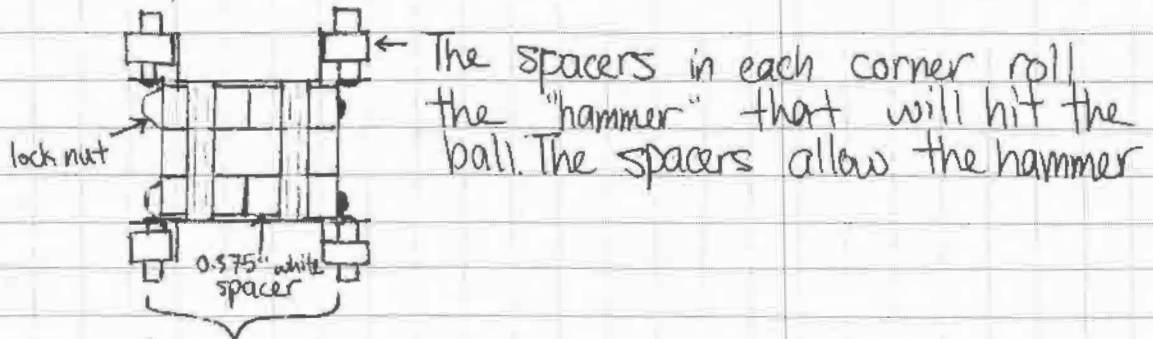 The spacers in each corner roll
the "hammer" that will hit the
ball. The spacers allow the hammer
lock nut
0.375" white
spacer